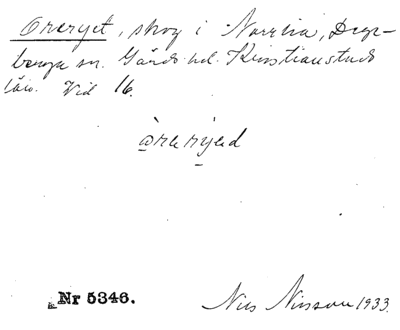 Oreryet, skog i Norrlia, Dege-
berga sn. Gärds hd. Kristianstads
län. Vid 16.
òrarýed
Nr 5346.
Nils Nilsson 1933.